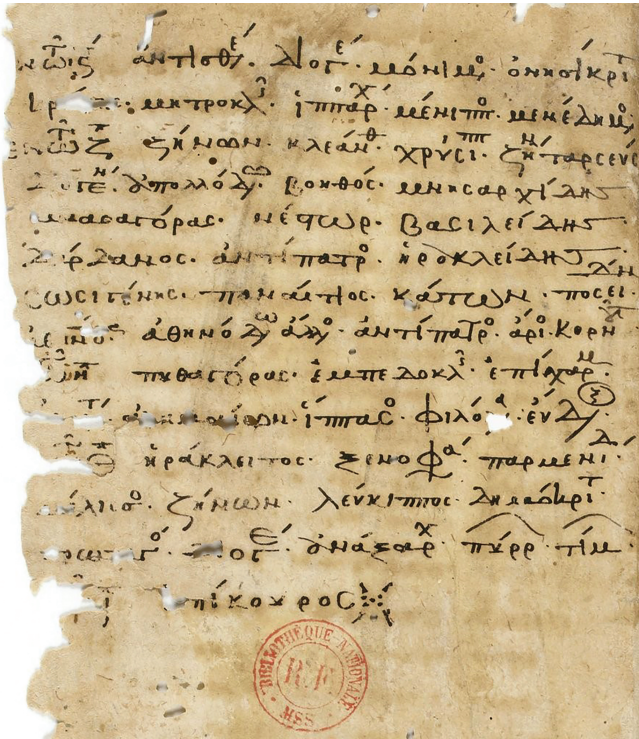 τῷ ϛ ἀντισθέ· διογέ· μόνιμος· ὀνησίκριτ
μητροκλ· ἵππαρχ· μένιππ· μενέδημος
τῷ ζ ζήνων· κλεάνθ· χρύσιπ· ζήν ταρσεύς
ἀπολλόδω· βοηθός· μνησαρχίδης
μνασαγόρας· νέστωρ· βασιλείδης
δάρδανος· ἀντίπατρο· ἡρακλείδης
σωσιγένης· παναίτιος· κάτων· ποσειδών
ἀθηνόδω ἄλλο· ἀντίπατρο· ἄρι· κορν
πυθαγόρας· ἐμπεδοκλ· ἐπίχαρμ
ἀλκμαίων· ἵππασο· φιλόλα· εὔδοξ
ἡράκλειτος· ξενοφά· παρμενίδ
μέλισσο· ζήνων· λεύκιππος· δημόκριτ
πρωταγό· διογέ· ἀνάξαρχ· πύρρ· τίμ
ἐπίκουρος
BIBLIOTHÈQUE NATIONALE MSS R.F.